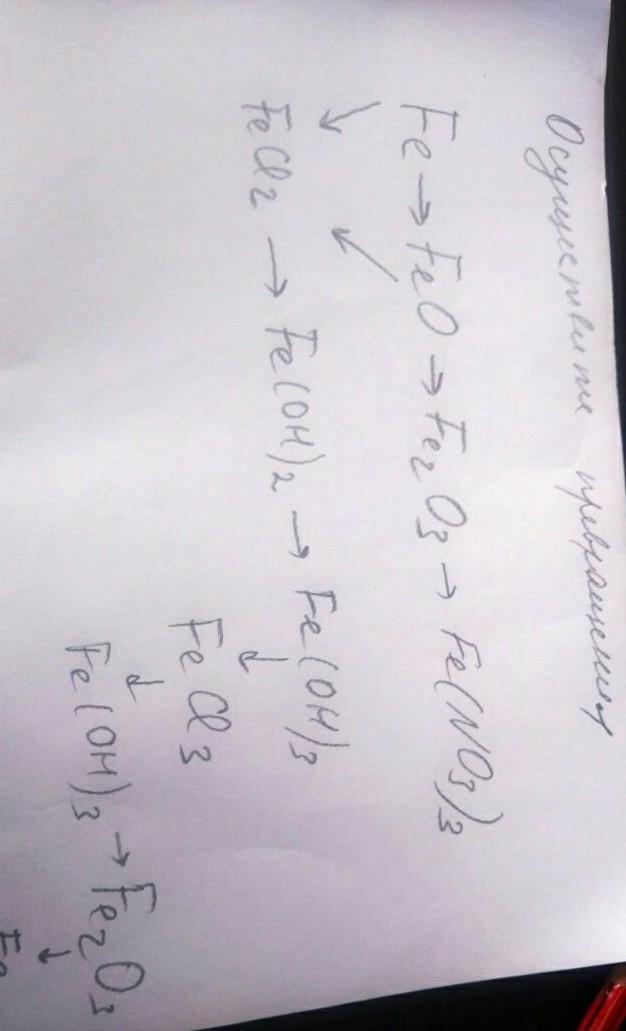 Осуществите превращения
Fe → FeO → Fe₂O₃ → Fe(NO₃)₃
↘ ↙
FeCl₂ → Fe(OH)₂ → Fe(OH)₃
↓
FeCl₃
↓
Fe(OH)₃ → Fe₂O₃
↓
Fe